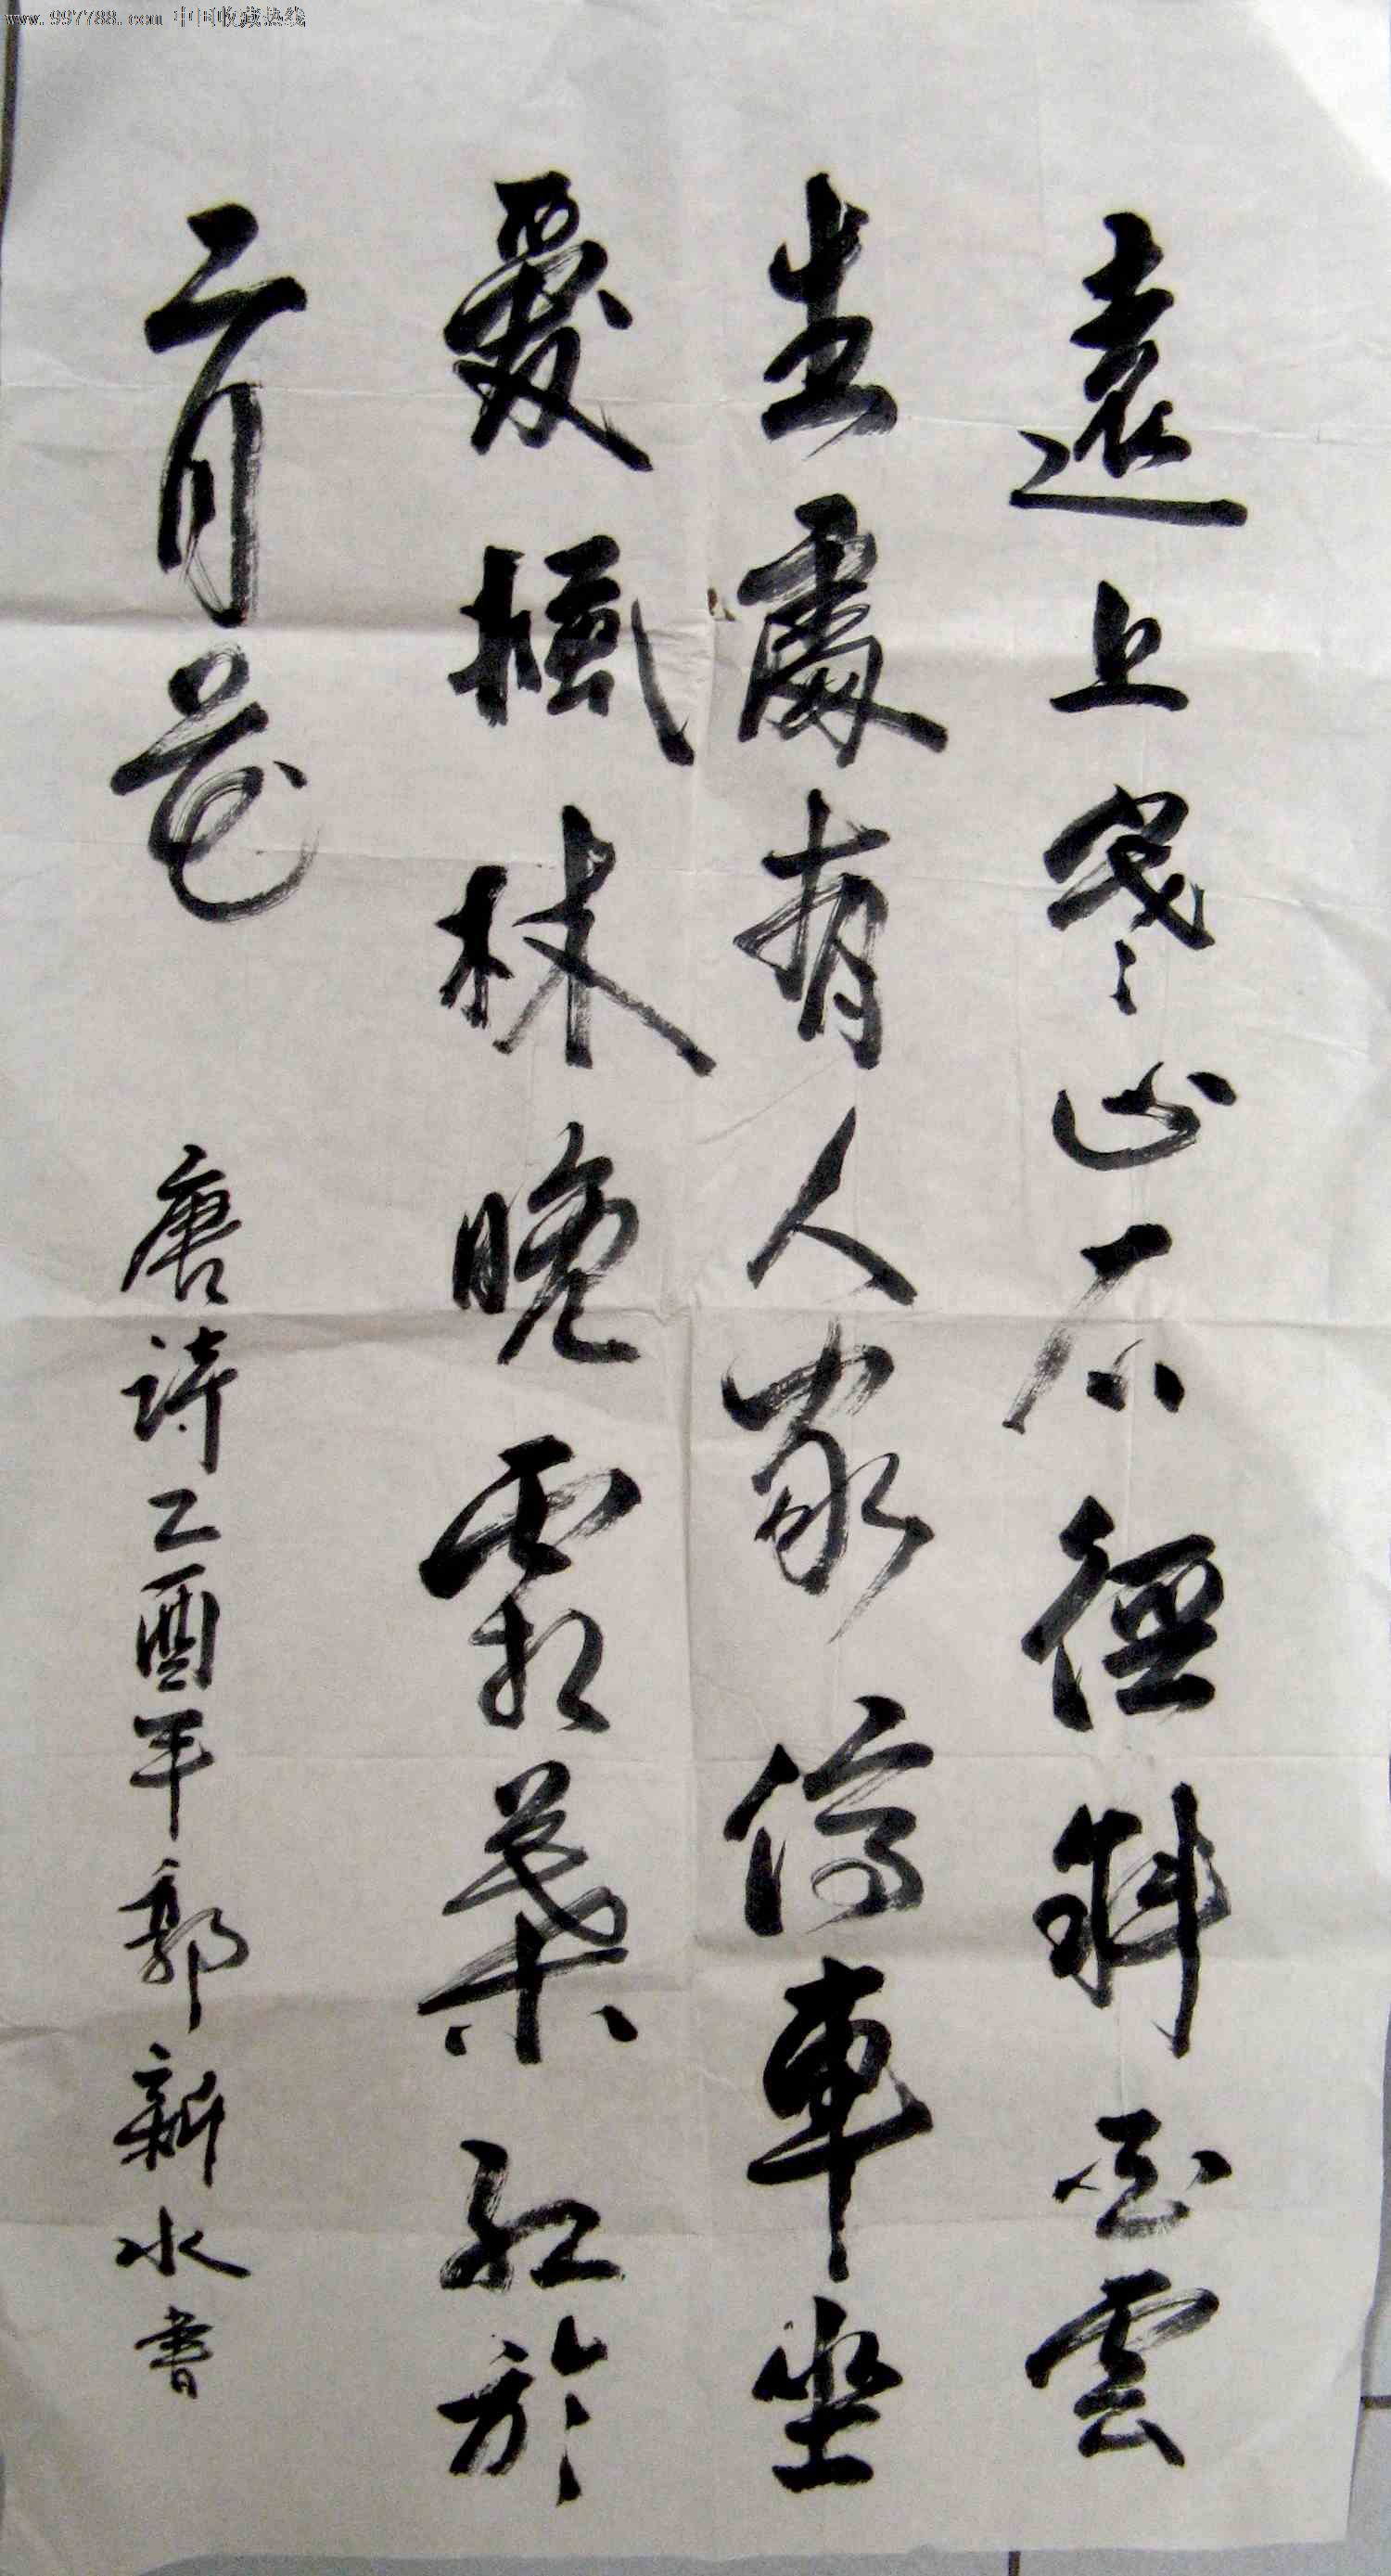 www.997788.com 中国收藏热线
遠上寒山石徑斜白雲
生處有人家停車坐
愛楓林晚霜葉紅於
二月花 唐詩乙酉年郭新水書